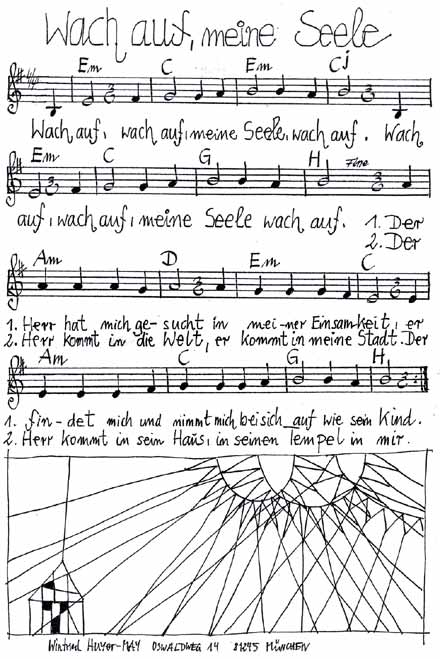 Wach auf, meine Seele
Em C Em C
Wach auf, wach auf, meine Seele, wach auf. Wach
Em C G H Fine
auf, wach auf, meine Seele wach auf. 1. Der
2. Der
Am D Em C
1. Herr hat mich ge-sucht in mei-ner Einsamkeit, er
2. Herr kommt in die Welt, er kommt in meine Stadt. Der
Am C G H
1. fin-det mich und nimmt mich bei sich auf wie sein Kind.
2. Herr kommt in sein Haus, in seinen Tempel in mir.
OSWALDWEG 14 MÜNCHEN